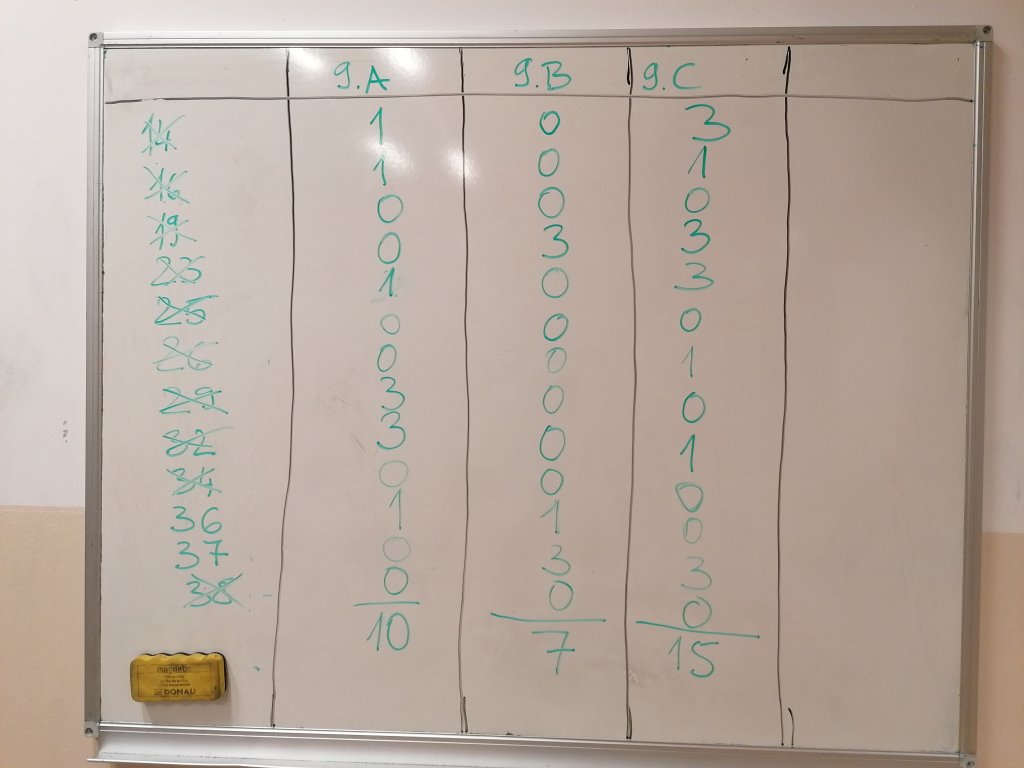 9.A 9.B 9.C
14 1 0 3
16 1 0 1
19 0 0 0
23 0 3 3
25 1 0 3
26 0 0 0
29 0 0 1
32 3 0 0
34 3 0 1
36 0 0 0
37 1 1 0
38 0 3 3
0 0 0
10 7 15
magnetic
DONAU